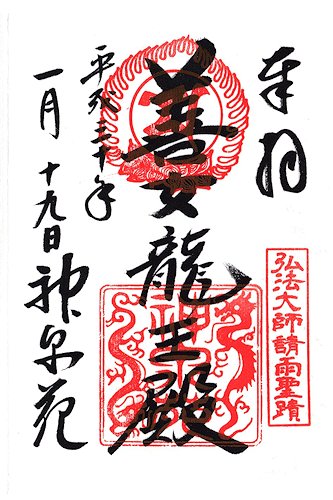 奉拝
弘法大師請雨聖蹟
善女龍王殿
平成三十年
一月十九日
神泉苑